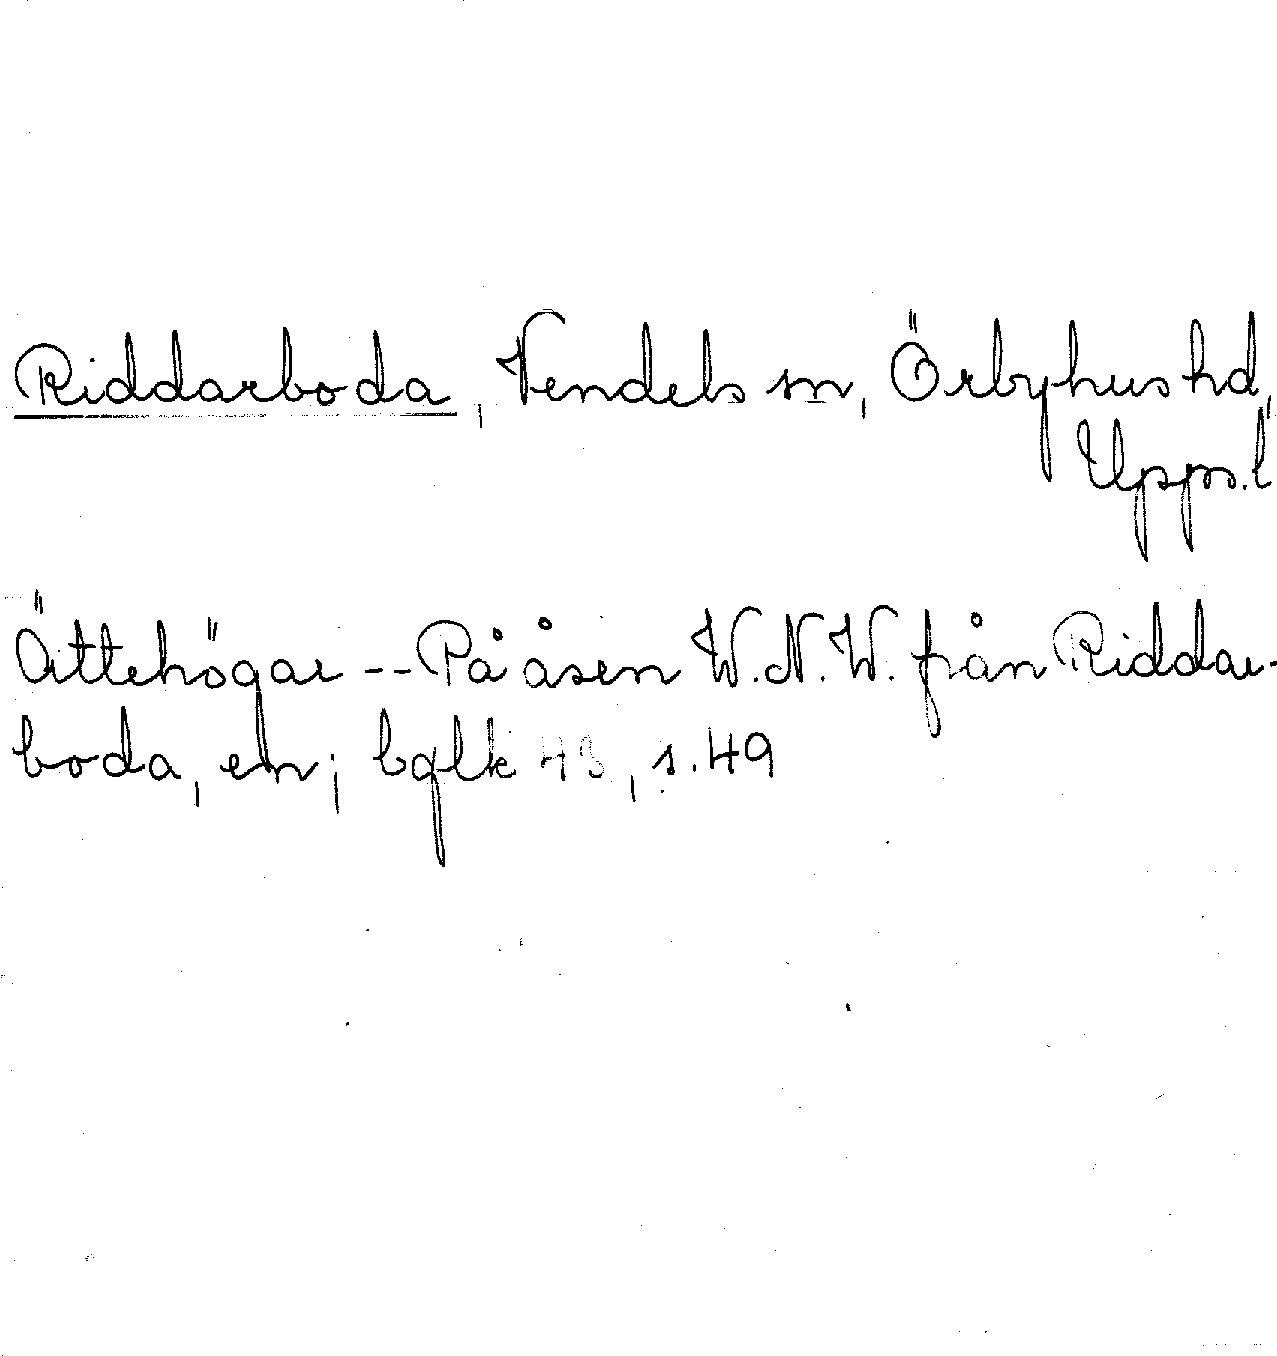 Riddarboda, Vendels sn, Örbyhus hd,
Upps. l
Ättehögar -- På åsen W.N.W. från Riddar-
boda, en; bglk 43, s. 49